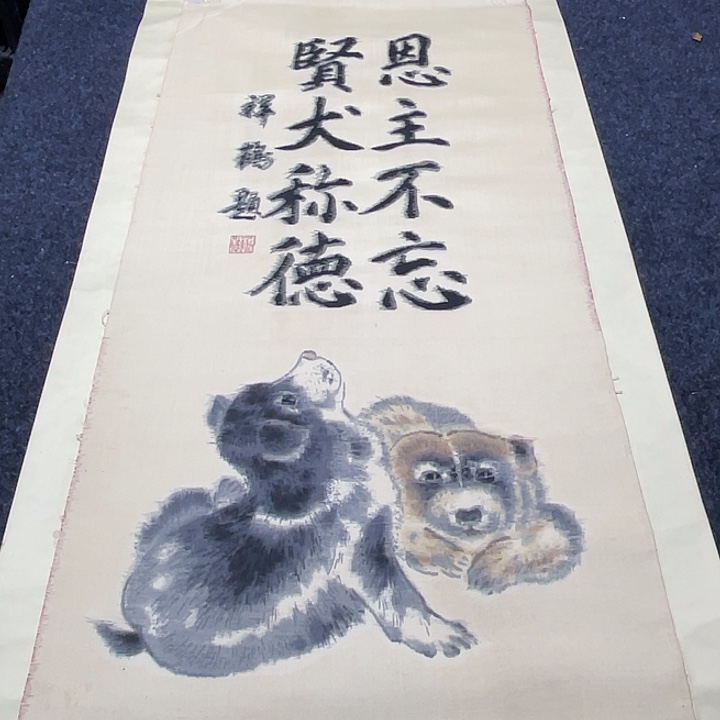 恩主不忘
賢犬称德
祥鶴題